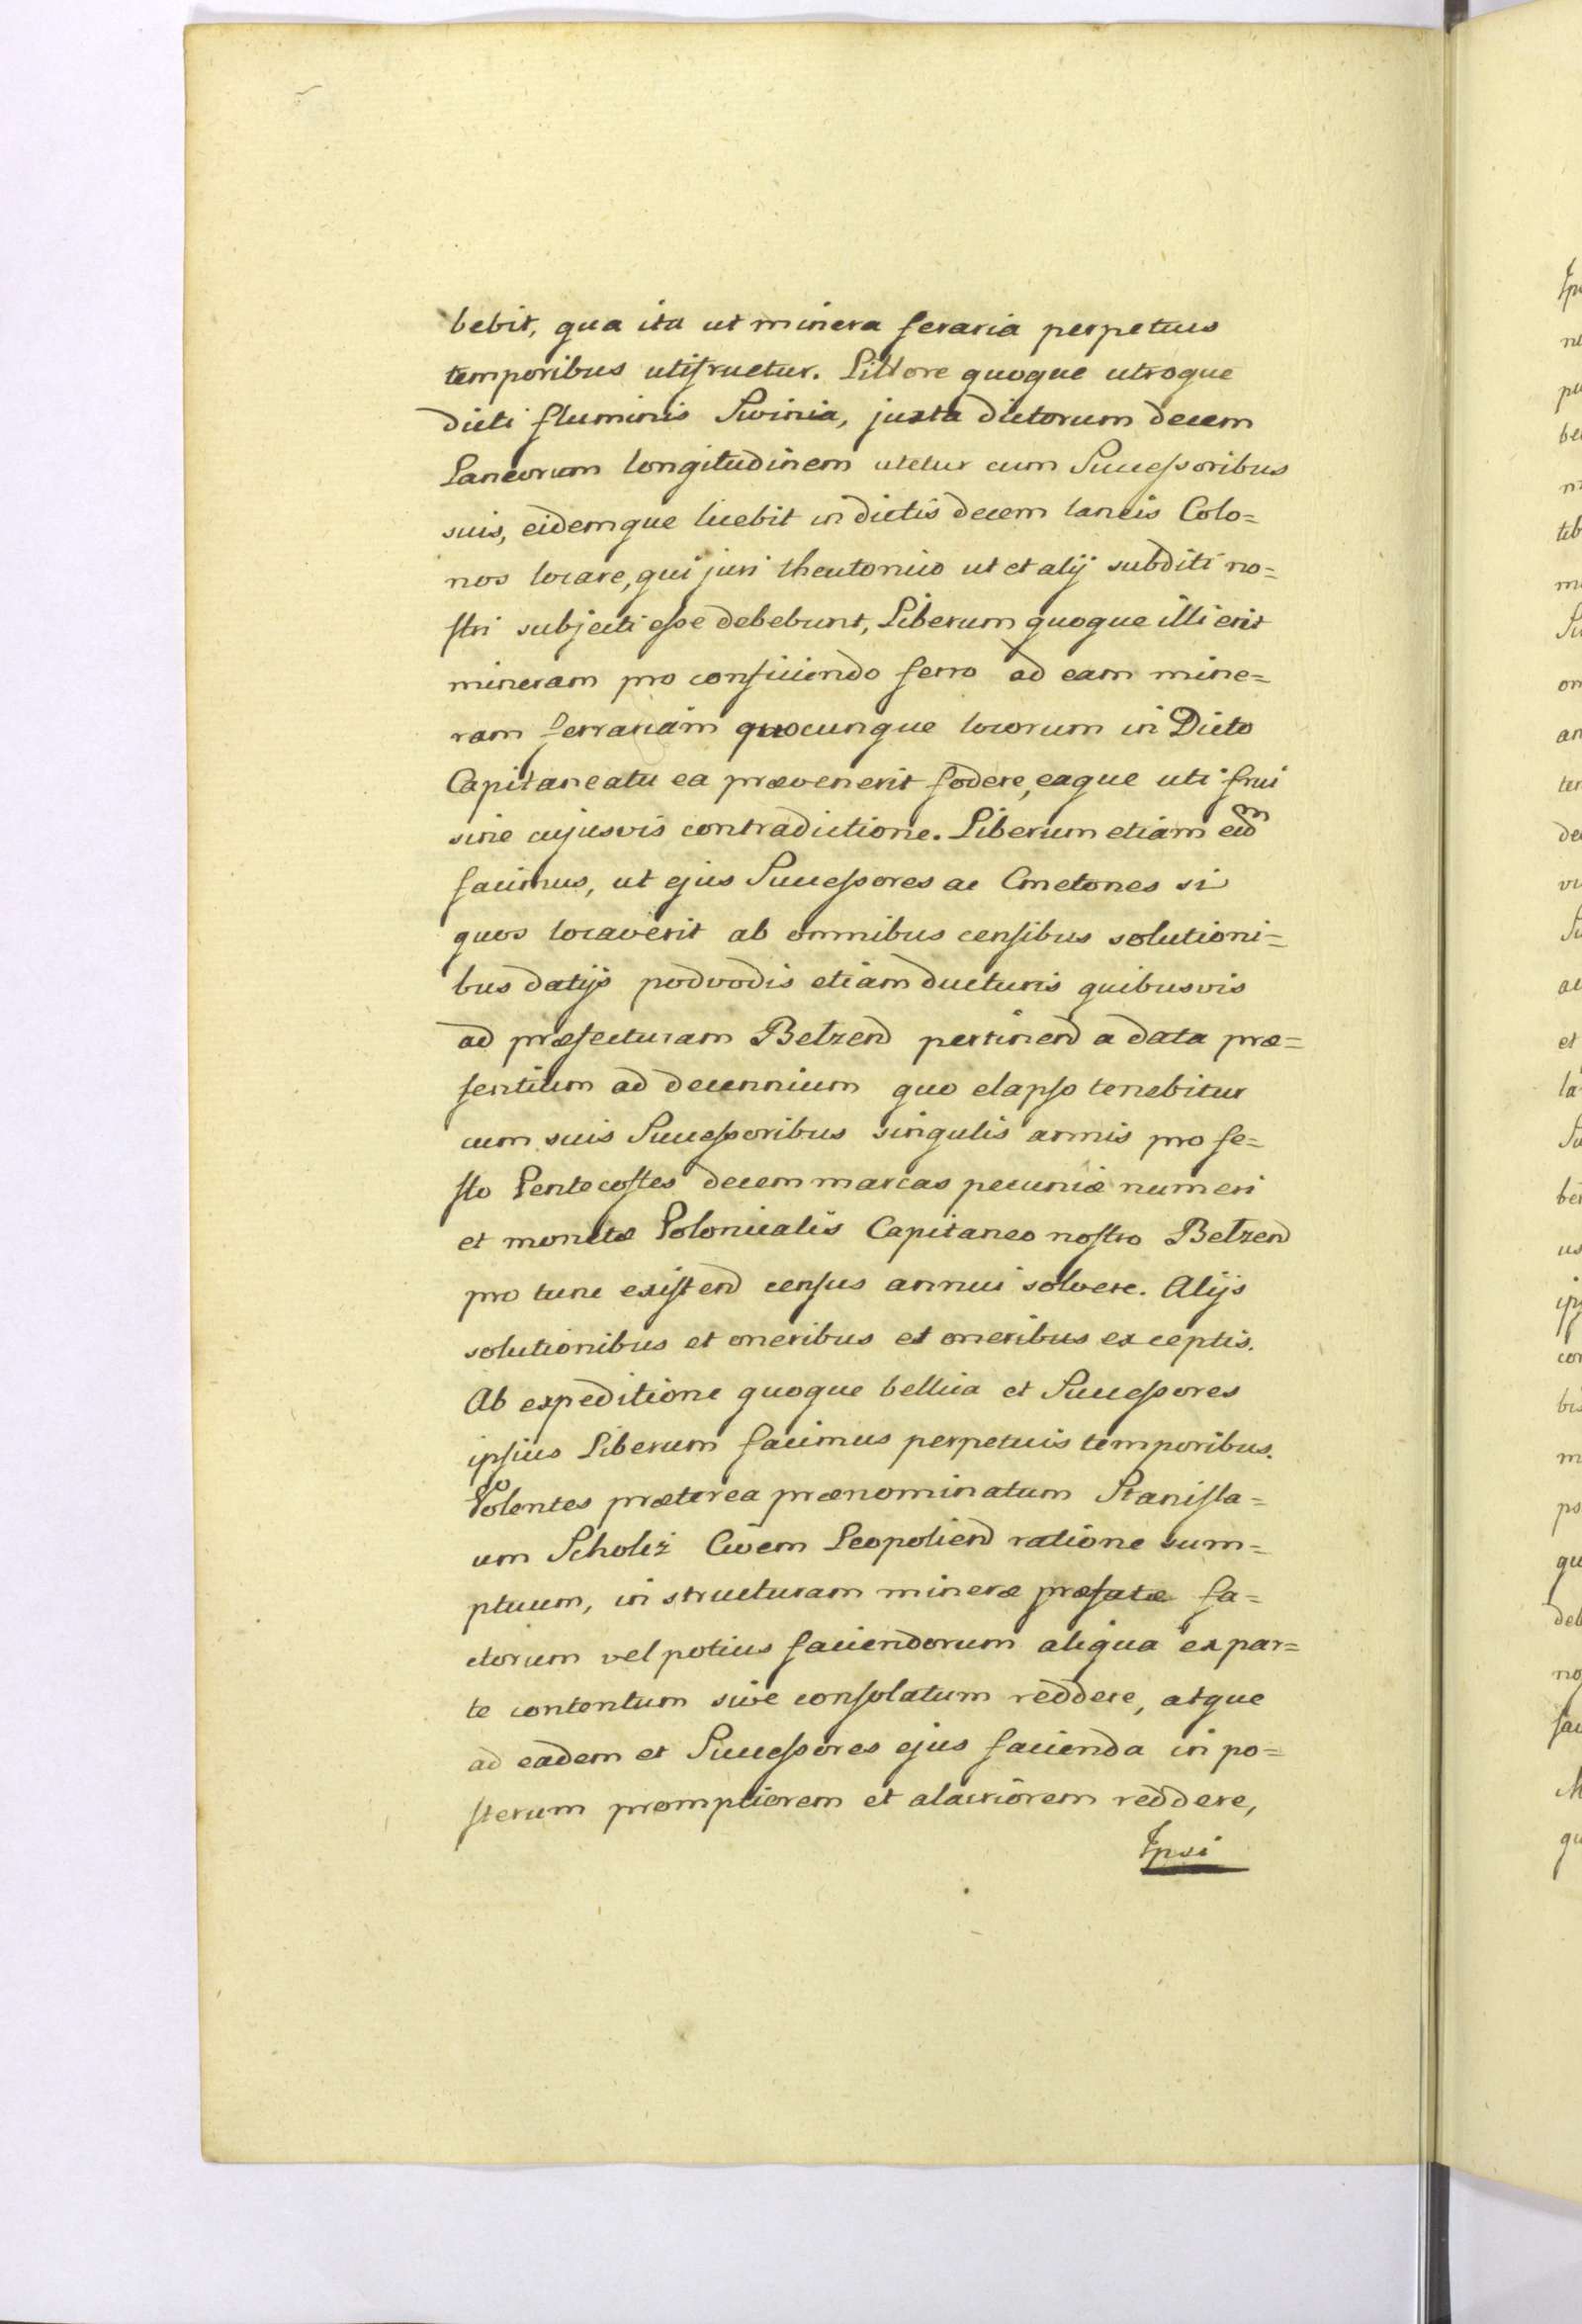 bebit, qua ita ut minera feraria perpetuis
temporibus utifruetur. Littore quoque utroque
dicti fluminis Swinia, juxta dictorum decem
Laneorum longitudinem utetur cum Successoribus
suis, eidemque licebit in dictis decem laneis Colo=
nos locare, qui juri theutonico ut et alij subditi no=
stri subjecti esse debebunt, Liberum quoque illi erit
mineram pro conficiendo ferro ad eam mine=
ram ferrariam quocunque locorum in Dicto
Capitaneatu ea prævenerit fodere, eaque uti frui
sine cujusvis contradictione. Liberum etiam eidm
facimus, ut ejus Successores ac Cmetones si
quos locaverit ab omnibus censibus solutioni=
bus datijs podvodis etiam ducturis quibusvis
ad præfecturam Betzend pertinend a data præ=
sentium ad decennium quo elapso tenebitur
cum suis Successoribus singulis annis pro fe=
sto Pentecostes decem marcas pecuniæ numeri
et monetæ Polonicalis Capitaneo nostro Betzend
pro tunc existend census annui solvere. Alijs
solutionibus et oneribus et oneribus exceptis.
Ab expeditione quoque bellica et Successores
ipsius Liberum facimus perpetuis temporibus.
Volentes præterea prænominatum Stanisla=
um Scholcz Civem Leopoliend ratione sum=
ptuum, in structuram mineræ præfatæ fa=
ctorum vel potius faciendorum aliqua ex par=
te contentum sive consolatum reddere, atque
ad eadem et Successores ejus facienda in po=
sterum promptiorem et alacriorem reddere,
Ipsi